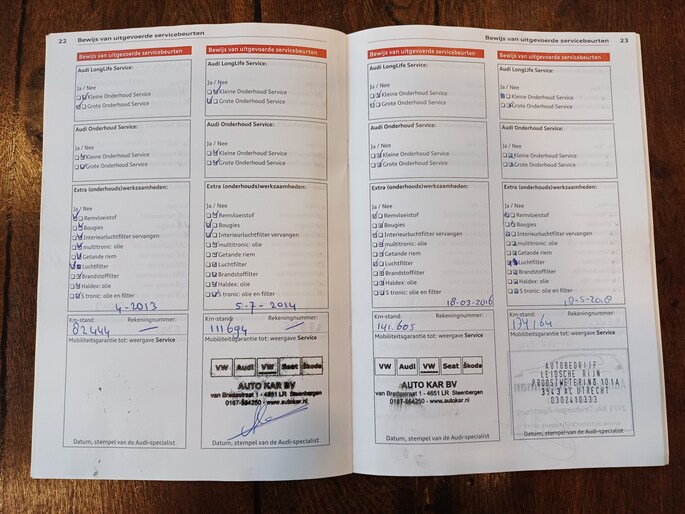 22 Bewijs van uitgevoerde servicebeurten
Bewijs van uitgevoerde servicebeurten
Audi LongLife Service:
Ja / Nee
Kleine Onderhoud Service
Grote Onderhoud Service
Audi Onderhoud Service:
Ja / Nee
Kleine Onderhoud Service
Grote Onderhoud Service
Extra (onderhouds)werkzaamheden:
Ja / Nee
Remvloeistof
Bougies
Interieurluchtfilter vervangen
multitronic: olie
Getande riem
Luchtfilter
Brandstoffilter
Haldex: olie
S tronic: olie en filter
4-2013
Km-stand: Rekeningnummer:
82444 —
Mobiliteitsgarantie tot: weergave Service
Datum, stempel van de Audi-specialist
Bewijs van uitgevoerde servicebeurten
Audi LongLife Service:
Ja / Nee
Kleine Onderhoud Service
Grote Onderhoud Service
Audi Onderhoud Service:
Ja / Nee
Kleine Onderhoud Service
Grote Onderhoud Service
Extra (onderhouds)werkzaamheden:
Ja / Nee
Remvloeistof
Bougies
Interieurluchtfilter vervangen
multitronic: olie
Getande riem
Luchtfilter
Brandstoffilter
Haldex: olie
S tronic: olie en filter
5-7-2014
Km-stand: Rekeningnummer:
111694 —
Mobiliteitsgarantie tot: weergave Service
VW Audi VW Seat Škoda
AUTO KAR BV
van Bredastraat 1 - 4651 LR Steenbergen
0167-564250 - www.autokar.nl
Datum, stempel van de Audi-specialist
Bewijs van uitgevoerde servicebeurten 23
Bewijs van uitgevoerde servicebeurten
Audi LongLife Service:
Ja / Nee
Kleine Onderhoud Service
Grote Onderhoud Service
Audi Onderhoud Service:
Ja / Nee
Kleine Onderhoud Service
Grote Onderhoud Service
Extra (onderhouds)werkzaamheden:
Ja / Nee
Remvloeistof
Bougies
Interieurluchtfilter vervangen
multitronic: olie
Getande riem
Luchtfilter
Brandstoffilter
Haldex: olie
S tronic: olie en filter
18-03-2016
Km-stand: Rekeningnummer:
141.605
Mobiliteitsgarantie tot: weergave Service
VW Audi VW Seat Škoda
AUTO KAR BV
van Bredastraat 1 - 4651 LR Steenbergen
0167-564250 - www.autokar.nl
Datum, stempel van de Audi-specialist
Bewijs van uitgevoerde servicebeurten
Audi LongLife Service:
Ja / Nee
Kleine Onderhoud Service
Grote Onderhoud Service
Audi Onderhoud Service:
Ja / Nee
Kleine Onderhoud Service
Grote Onderhoud Service
Extra (onderhouds)werkzaamheden:
Ja / Nee
Remvloeistof
Bougies
Interieurluchtfilter vervangen
multitronic: olie
Getande riem
Luchtfilter
Brandstoffilter
Haldex: olie
S tronic: olie en filter
Km-stand: Rekeningnummer:
Mobiliteitsgarantie tot: weergave Service
AUTOBEDRIJF
LEIDSCHE RIJN
PROOSTWETERING 101A
3543 AC UTRECHT
0302410333
Datum, stempel van de Audi-specialist